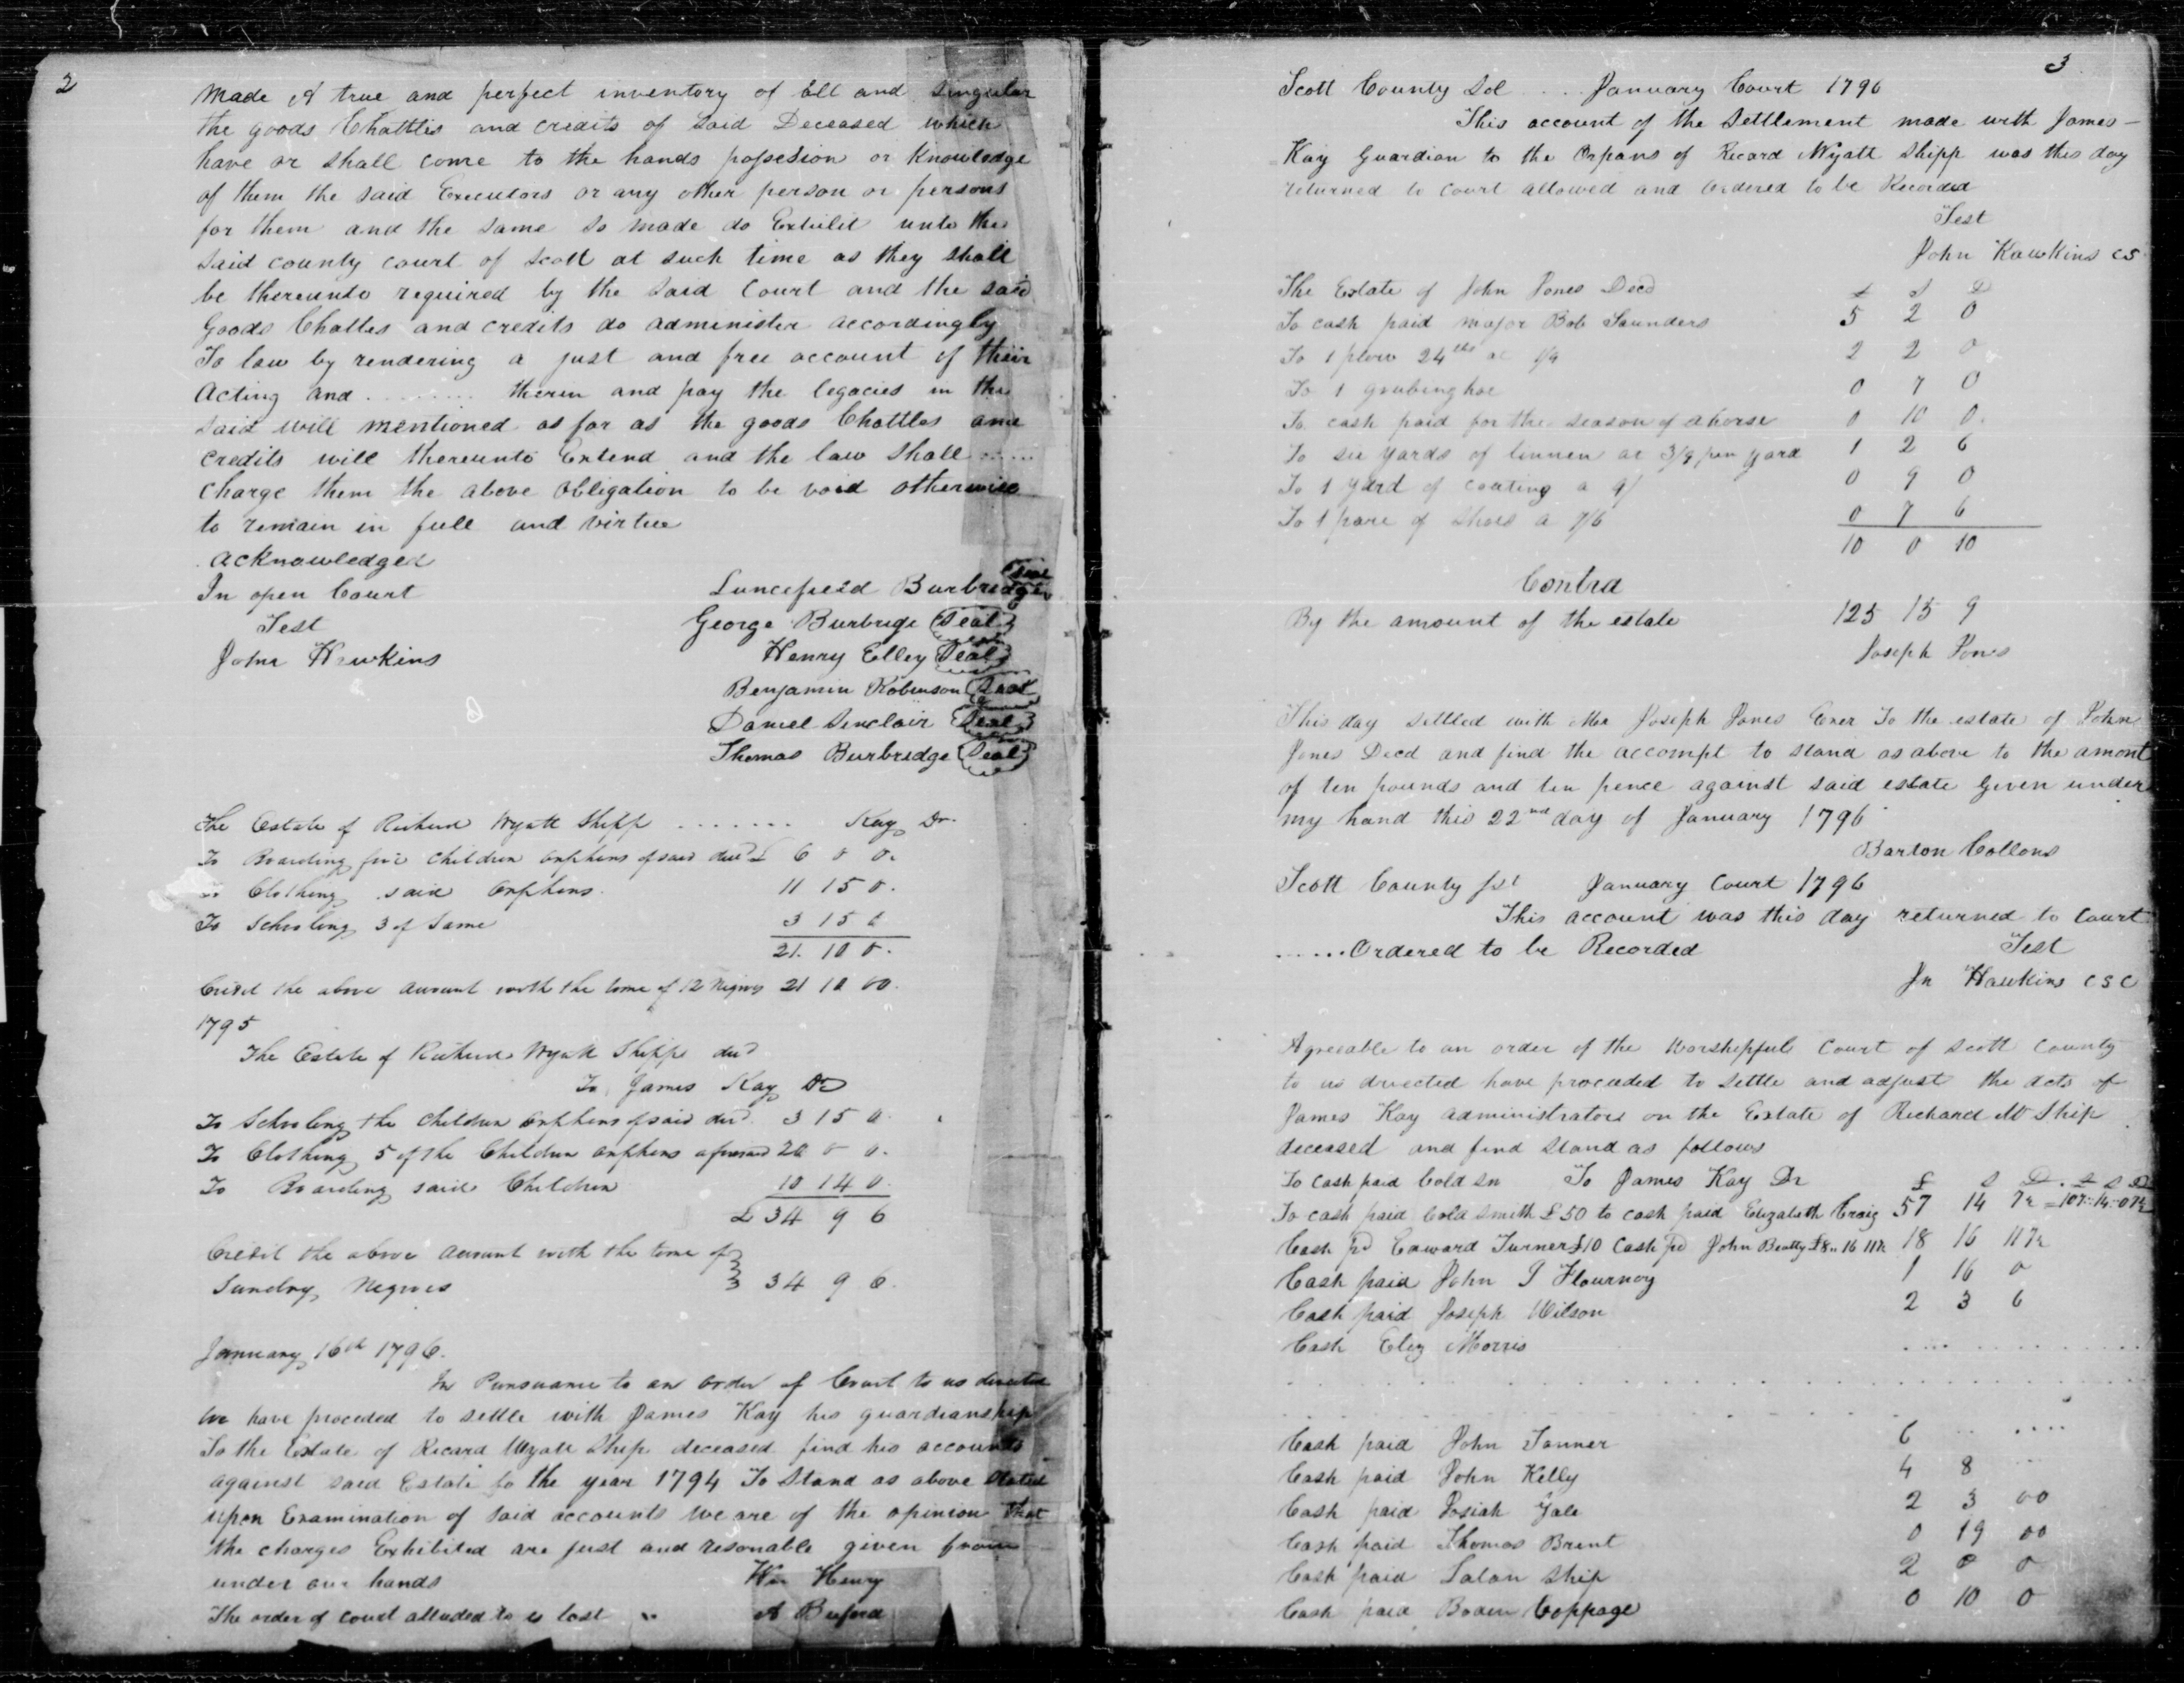 2
Made A true and perfect inventory of all and singular
the goods Chattles and credits of said Deceased which
have or shall come to the hands possesion or Knowledge
of them the said Executors or any other person or persons
for them and the same so made do Exhibit unto the
said county court of Scott at such time as they shall
be thereunto required by the said Court and the said
Goods Chattles and credits do administer accordingly
To law by rendering a just and free account of their
Acting and ........ therin and pay the legacies in the
said will mentioned as far as the goods Chattles and
credits will thereunto Extend and the law shall ......
charge them the above obligation to be void otherwise
to remain in full and virtue
acknowledged
In open Court
Test
John Hawkins
Luncefield Burbredge Seal
George Burbrige Seal
Henry Elley Seal
Benjamin Robinson Seal
Daniel Sinclair Seal
Thomas Burbredge Seal
The Estate of Richard Wyatt Shipp ....... Kay Dr.
To Boarding five children orphans of said decd £ 6 0 0.
To Clothing said Orphans. 11 15 0.
To Schooling 3 of Same 3 15 0
21. 10 0.
Credit the above amount with the time of 12 Negroes 21 10 00.
1795
The Estate of Richard Wyatt Shipp decd
To James Kay Dr
To Schooling the children orphans of said decd. 3 15 0.
To Clothing 5 of the Children orphans aforesaid 20 0 0.
To Boarding said Children 10 14 0.
£ 34 9 6
Credit the above amount with the time of
Sundry Negroes 34 9 6.
January 16th 1796.
In Pursuance to an order of Court to us directed
We have proceded to settle with James Kay his guardianship
To the Estate of Ricard Wyatt Ship deceased find his accounts
against said Estate fo the year 1794 To Stand as above stated
upon Examination of said accounts we are of the opinion that
the charges Exhibited are just and resonable given from
under our hands Wm Henry
The order of court alluded to is lost " A Buford
3
Scott County Sct ... January Court 1796
This account of the Settlement made with James
Kay Guardian to the Orpans of Recard Wyatt Shipp was this day
returned to court allowed and ordered to be Recorded
Test
John Hawkins CS
The Estate of John Jones Decd £ S D
To cash paid major Bob Saunders 5 2 0
To 1 plow 24 lbs at 1/9 2 2 0
To 1 grubing hoe 0 7 0
To cash paid for the season of a horse 0 10 0.
To six yards of linnen at 3/9 per yard 1 2 6
To 1 yard of coating a 9/ 0 9 0
To 1 pare of Shoes a 7/6 0 7 6
10 0 10
Contra
By the amount of the estate 125 15 9
Joseph Jones
This day settled with Mr Joseph Jones Exer To the estate of John
Jones Decd and find the accompt to stand as above to the amont
of ten pounds and ten pence against said estate Given under
my hand this 22nd day of January 1796
Barton Collons
Scott County Sct January Court 1796
This account was this day returned to Court
.....Ordered to be Recorded Test
Jn Hawkins CSC
Agreeable to an order of the Worshipfull Court of Scott County
to us directed have proceeded to settle and adjust the acts of
James Kay administrator on the Estate of Richard W Ship
deceased and find stand as follows
To cash paid Cold Sn To James Kay Dr £ S D. £ S D
To cash paid Cold Smith £50 to cash paid Elizabeth Craig 57 14 7½ =107 14 07½
Cash pd Edward Turner £10 Cash pd John Beatty £8 16 11½ 18 16 11½
Cash paid John J Flournoy 1 16 0
Cash paid Joseph Wilson 2 3 6
Cash Eliz Morris ....
Cash paid John Tanner 6 .. ....
Cash paid John Kelly 4 8 ...
Cash paid Josiah Gale 2 3 00
Cash paid Thomas Brent 0 19 00
Cash paid Laban Ship 2 0 0
Cash paid Boden Coppage 0 10 0